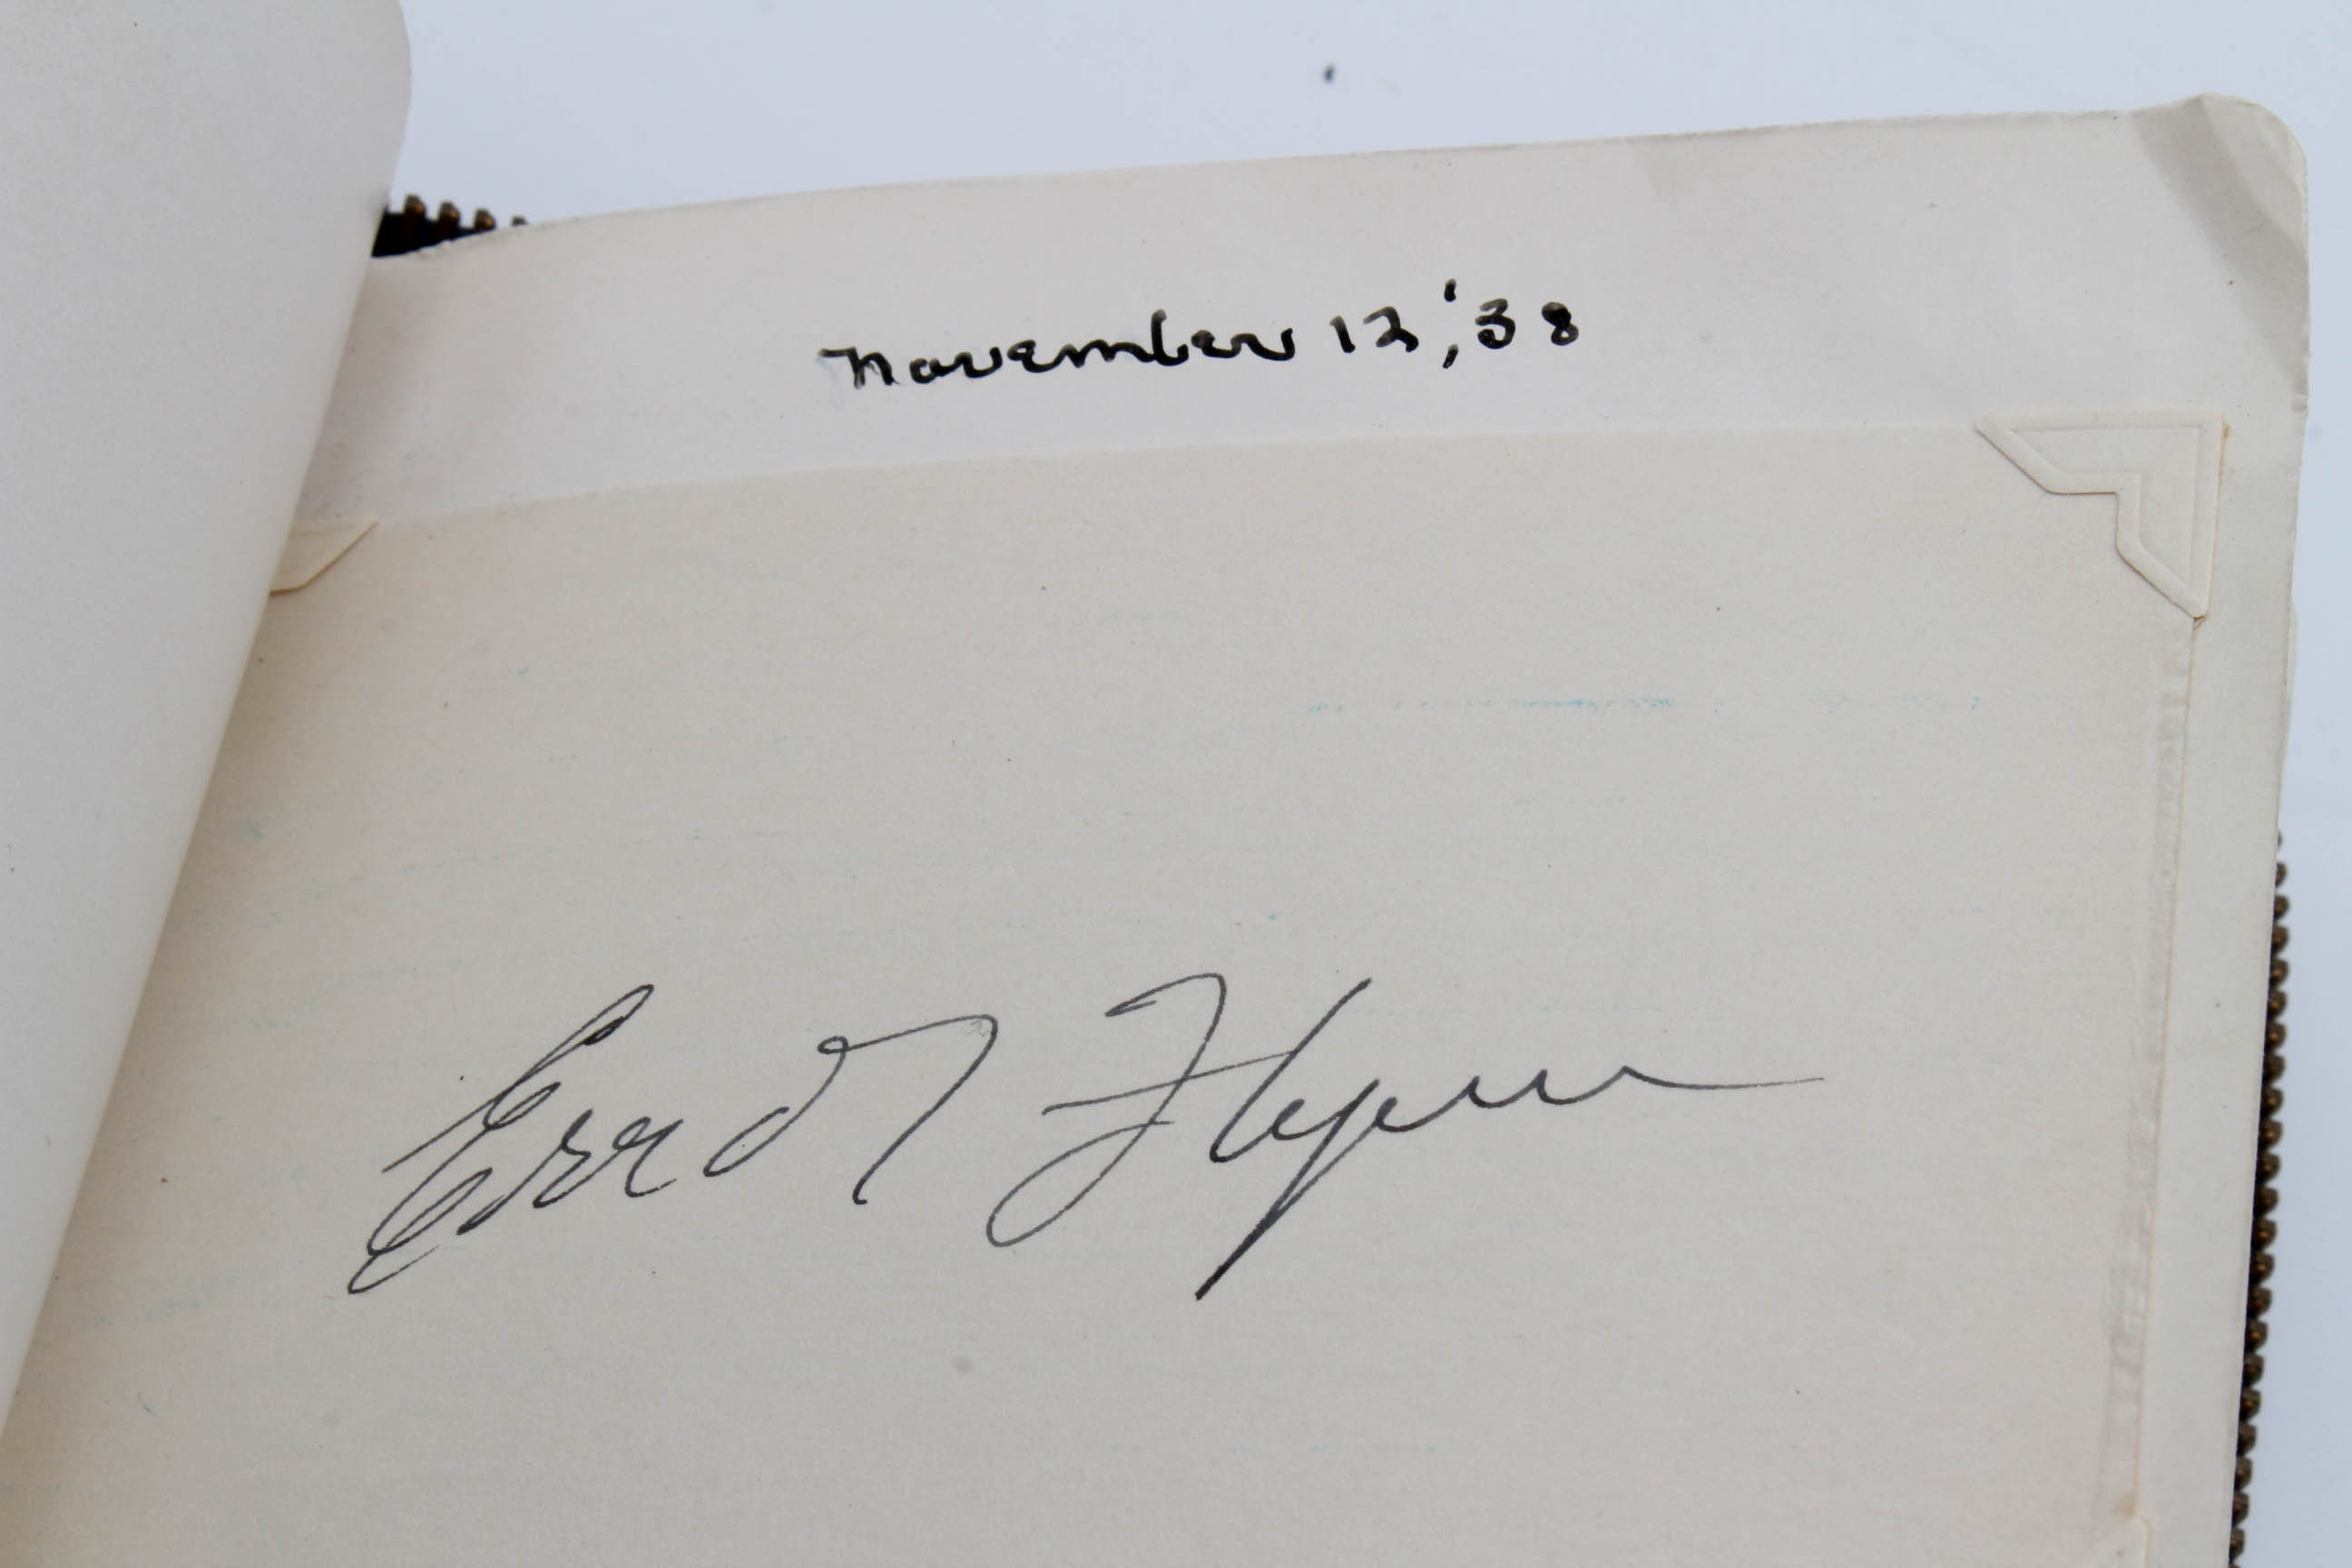 November 12, '38
Errol Flynn